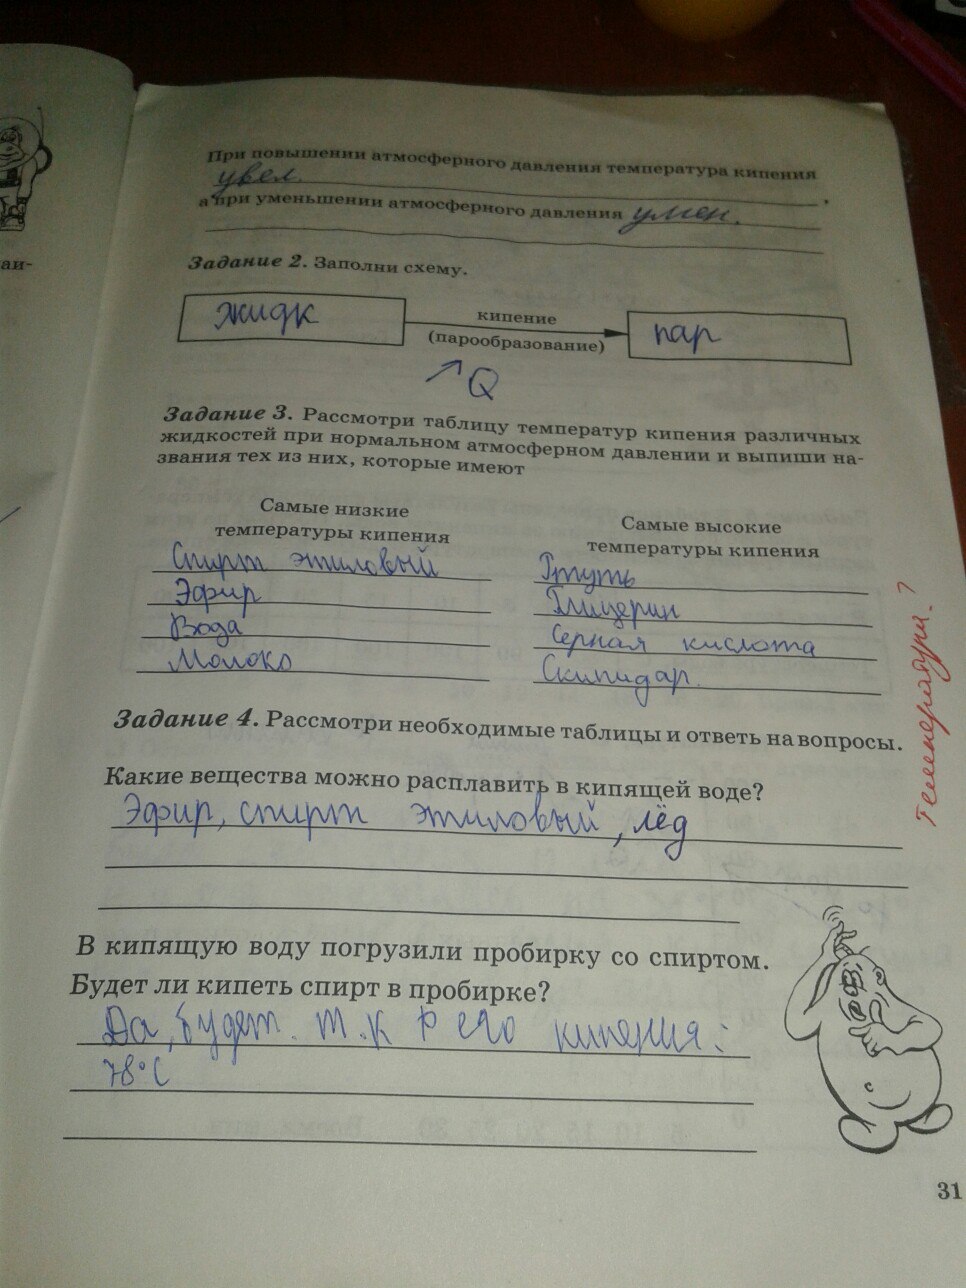 При повышении атмосферного давления температура кипения
увел. ,
а при уменьшении атмосферного давления умен.
аи-
Задание 2. Заполни схему.
жидк
кипение
(парообразование)
пар
Q
Задание 3. Рассмотри таблицу температур кипения различных
жидкостей при нормальном атмосферном давлении и выпиши на-
звания тех из них, которые имеют
Самые низкие
температуры кипения
Спирт этиловый
Эфир
Вода
Молоко
Самые высокие
температуры кипения
Ртуть
Глицерин
Серная кислота
Скипидар.
Температури.?
Задание 4. Рассмотри необходимые таблицы и ответь на вопросы.
Какие вещества можно расплавить в кипящей воде?
Эфир, спирт этиловый, лёд
В кипящую воду погрузили пробирку со спиртом.
Будет ли кипеть спирт в пробирке?
Да, будет. т.к его кипения:
78°C
31